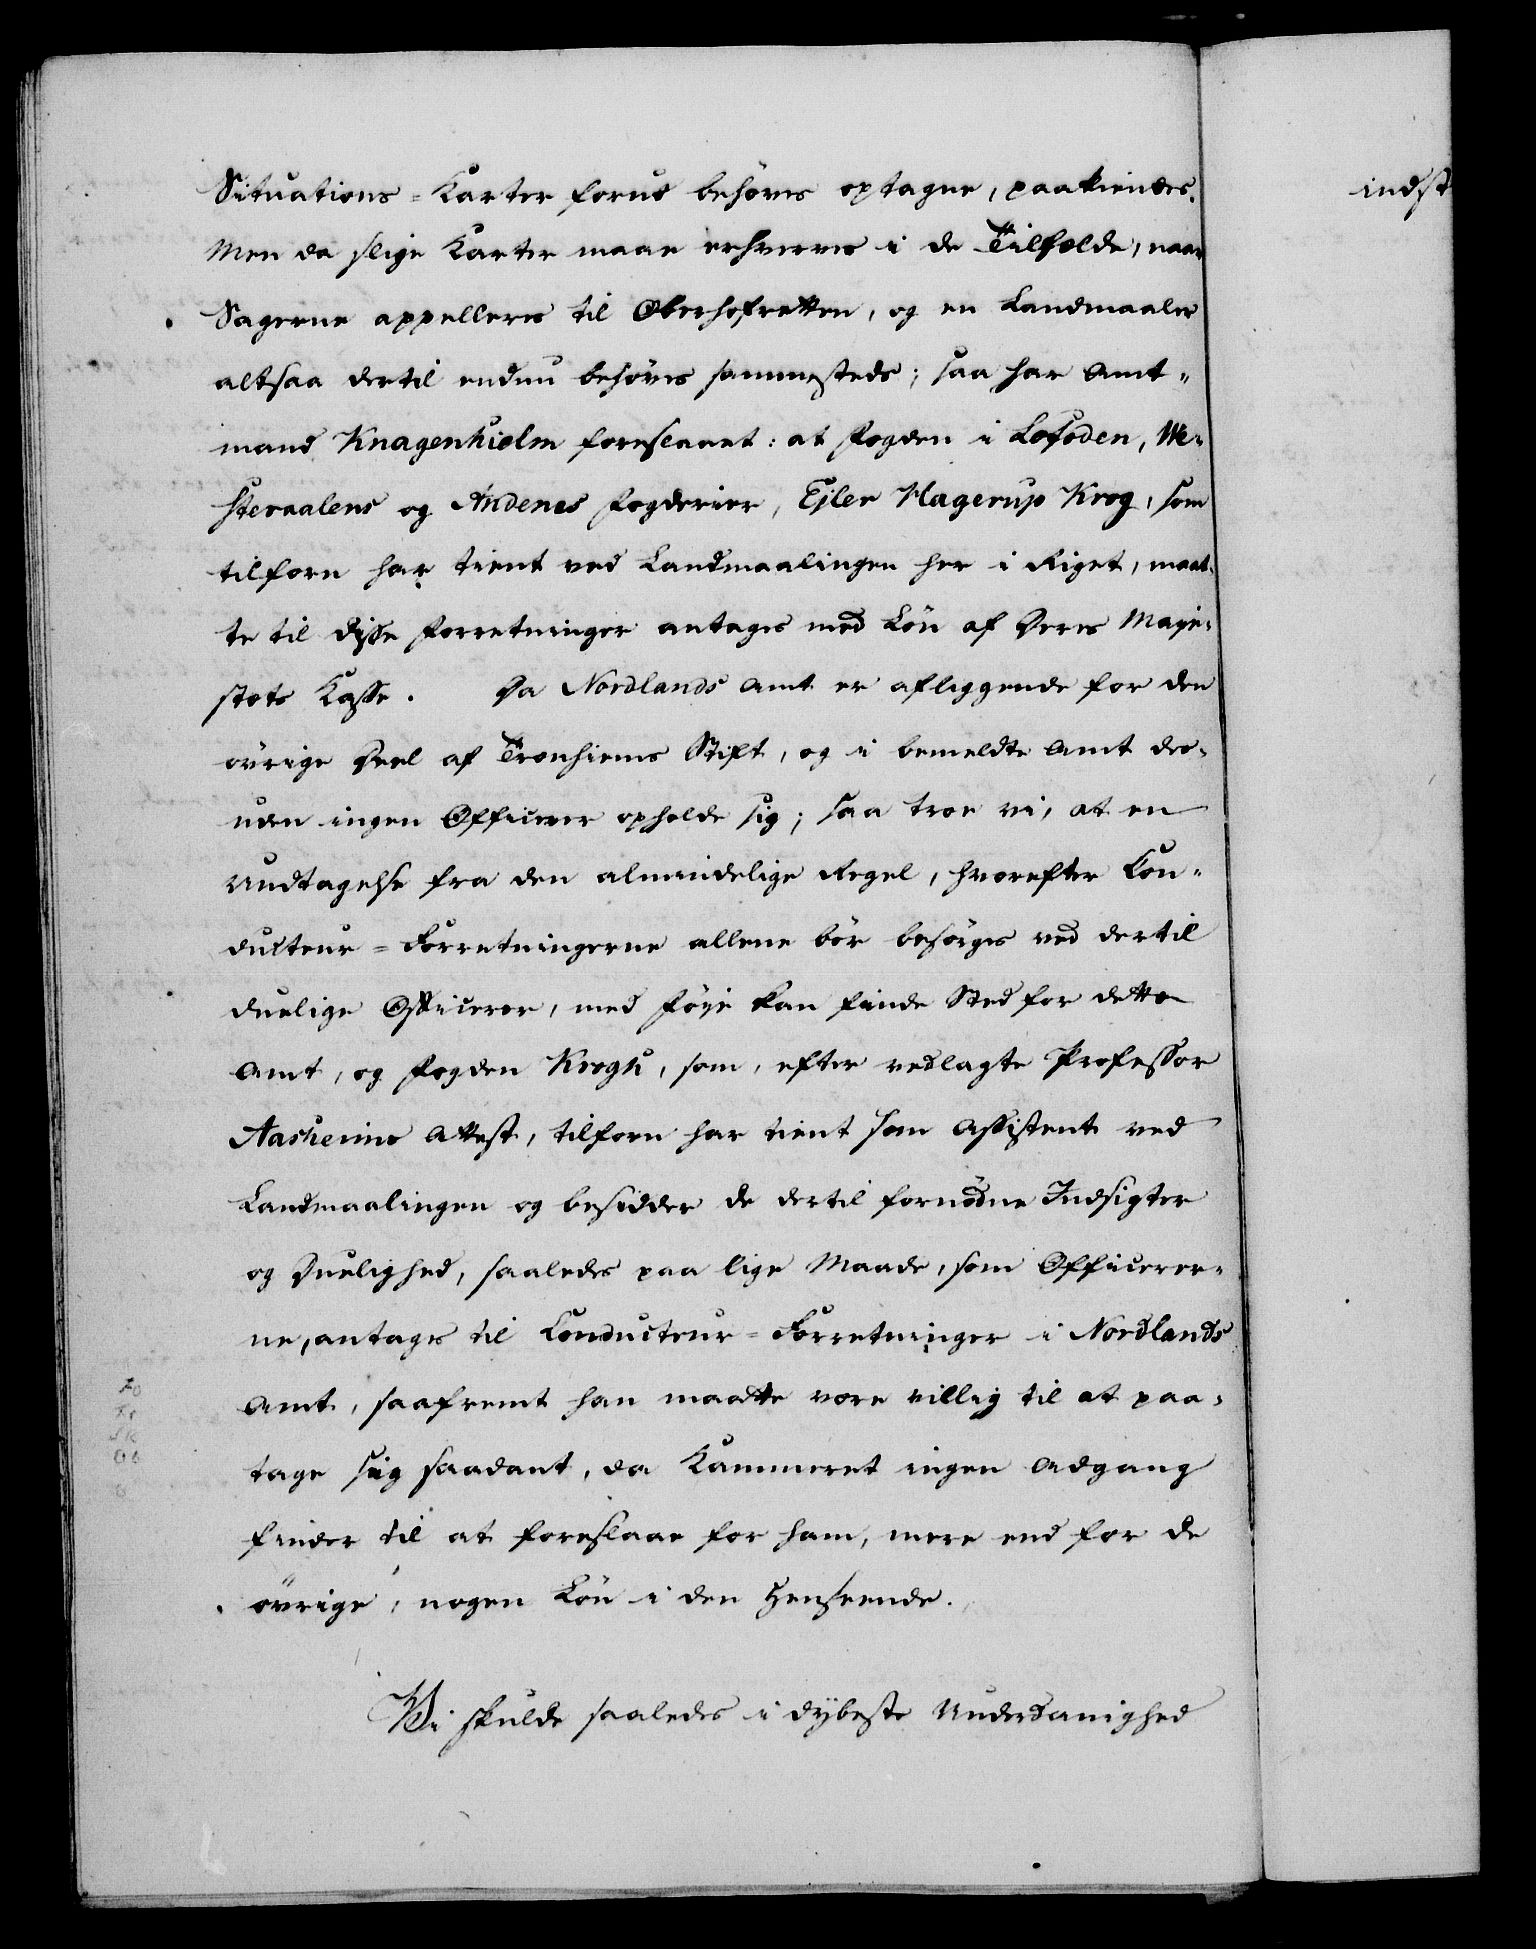 Situations-Karter forud behöves optagne, paakiendes.
Men da slige Karter maae erhverves i de Tilfælde, naar
Sagerne appelleres til Oberhofretten, og en Landmaaler
altsaa dertil endnu behöves sammesteds; saa har Amt-
mand Knagenhielm foreslaaet: at Fogden i Lofoden, We-
steraalens og Andenes Fogderier, Ejler Hagerup Krog, som
tilforn har tient ved Landmaalingen her i Riget, maat-
te til disse Forretninger antages med Lön af Deres Maje-
stæts Kasse. Da Nordlands Amt er afliggende for den
övrige Deel af Tronhiems Stift, og i bemeldte Amt des-
uden ingen Officerer opholde sig; saa troe vi, at en
Undtagelse fra den almindelige Regel, hvorefter Con-
ducteur-Forretningerne allene bör besörges ved dertil
duelige Officerer, med Föje kan finde Sted for dette
Amt, og Fogden Krogh, som, efter vedlagte Professor
Aasheims Attest, tilforn har tient som Assistent ved
Landmaalingen og besidder de dertil fornödne Indsigter
og Duelighed, saaledes paa lige Maade, som Officerer-
ne, antages til Conducteur-Forretninger i Nordlands
Amt, saafremt han maatte være villig til at paa-
tage sig saadant, da Kammeret ingen Adgang
finder til at foreslaae for ham, mere end for de
övrige, nogen Lön i den Henseende.
Vi skulde saaledes i dybeste Underdanighed
indst